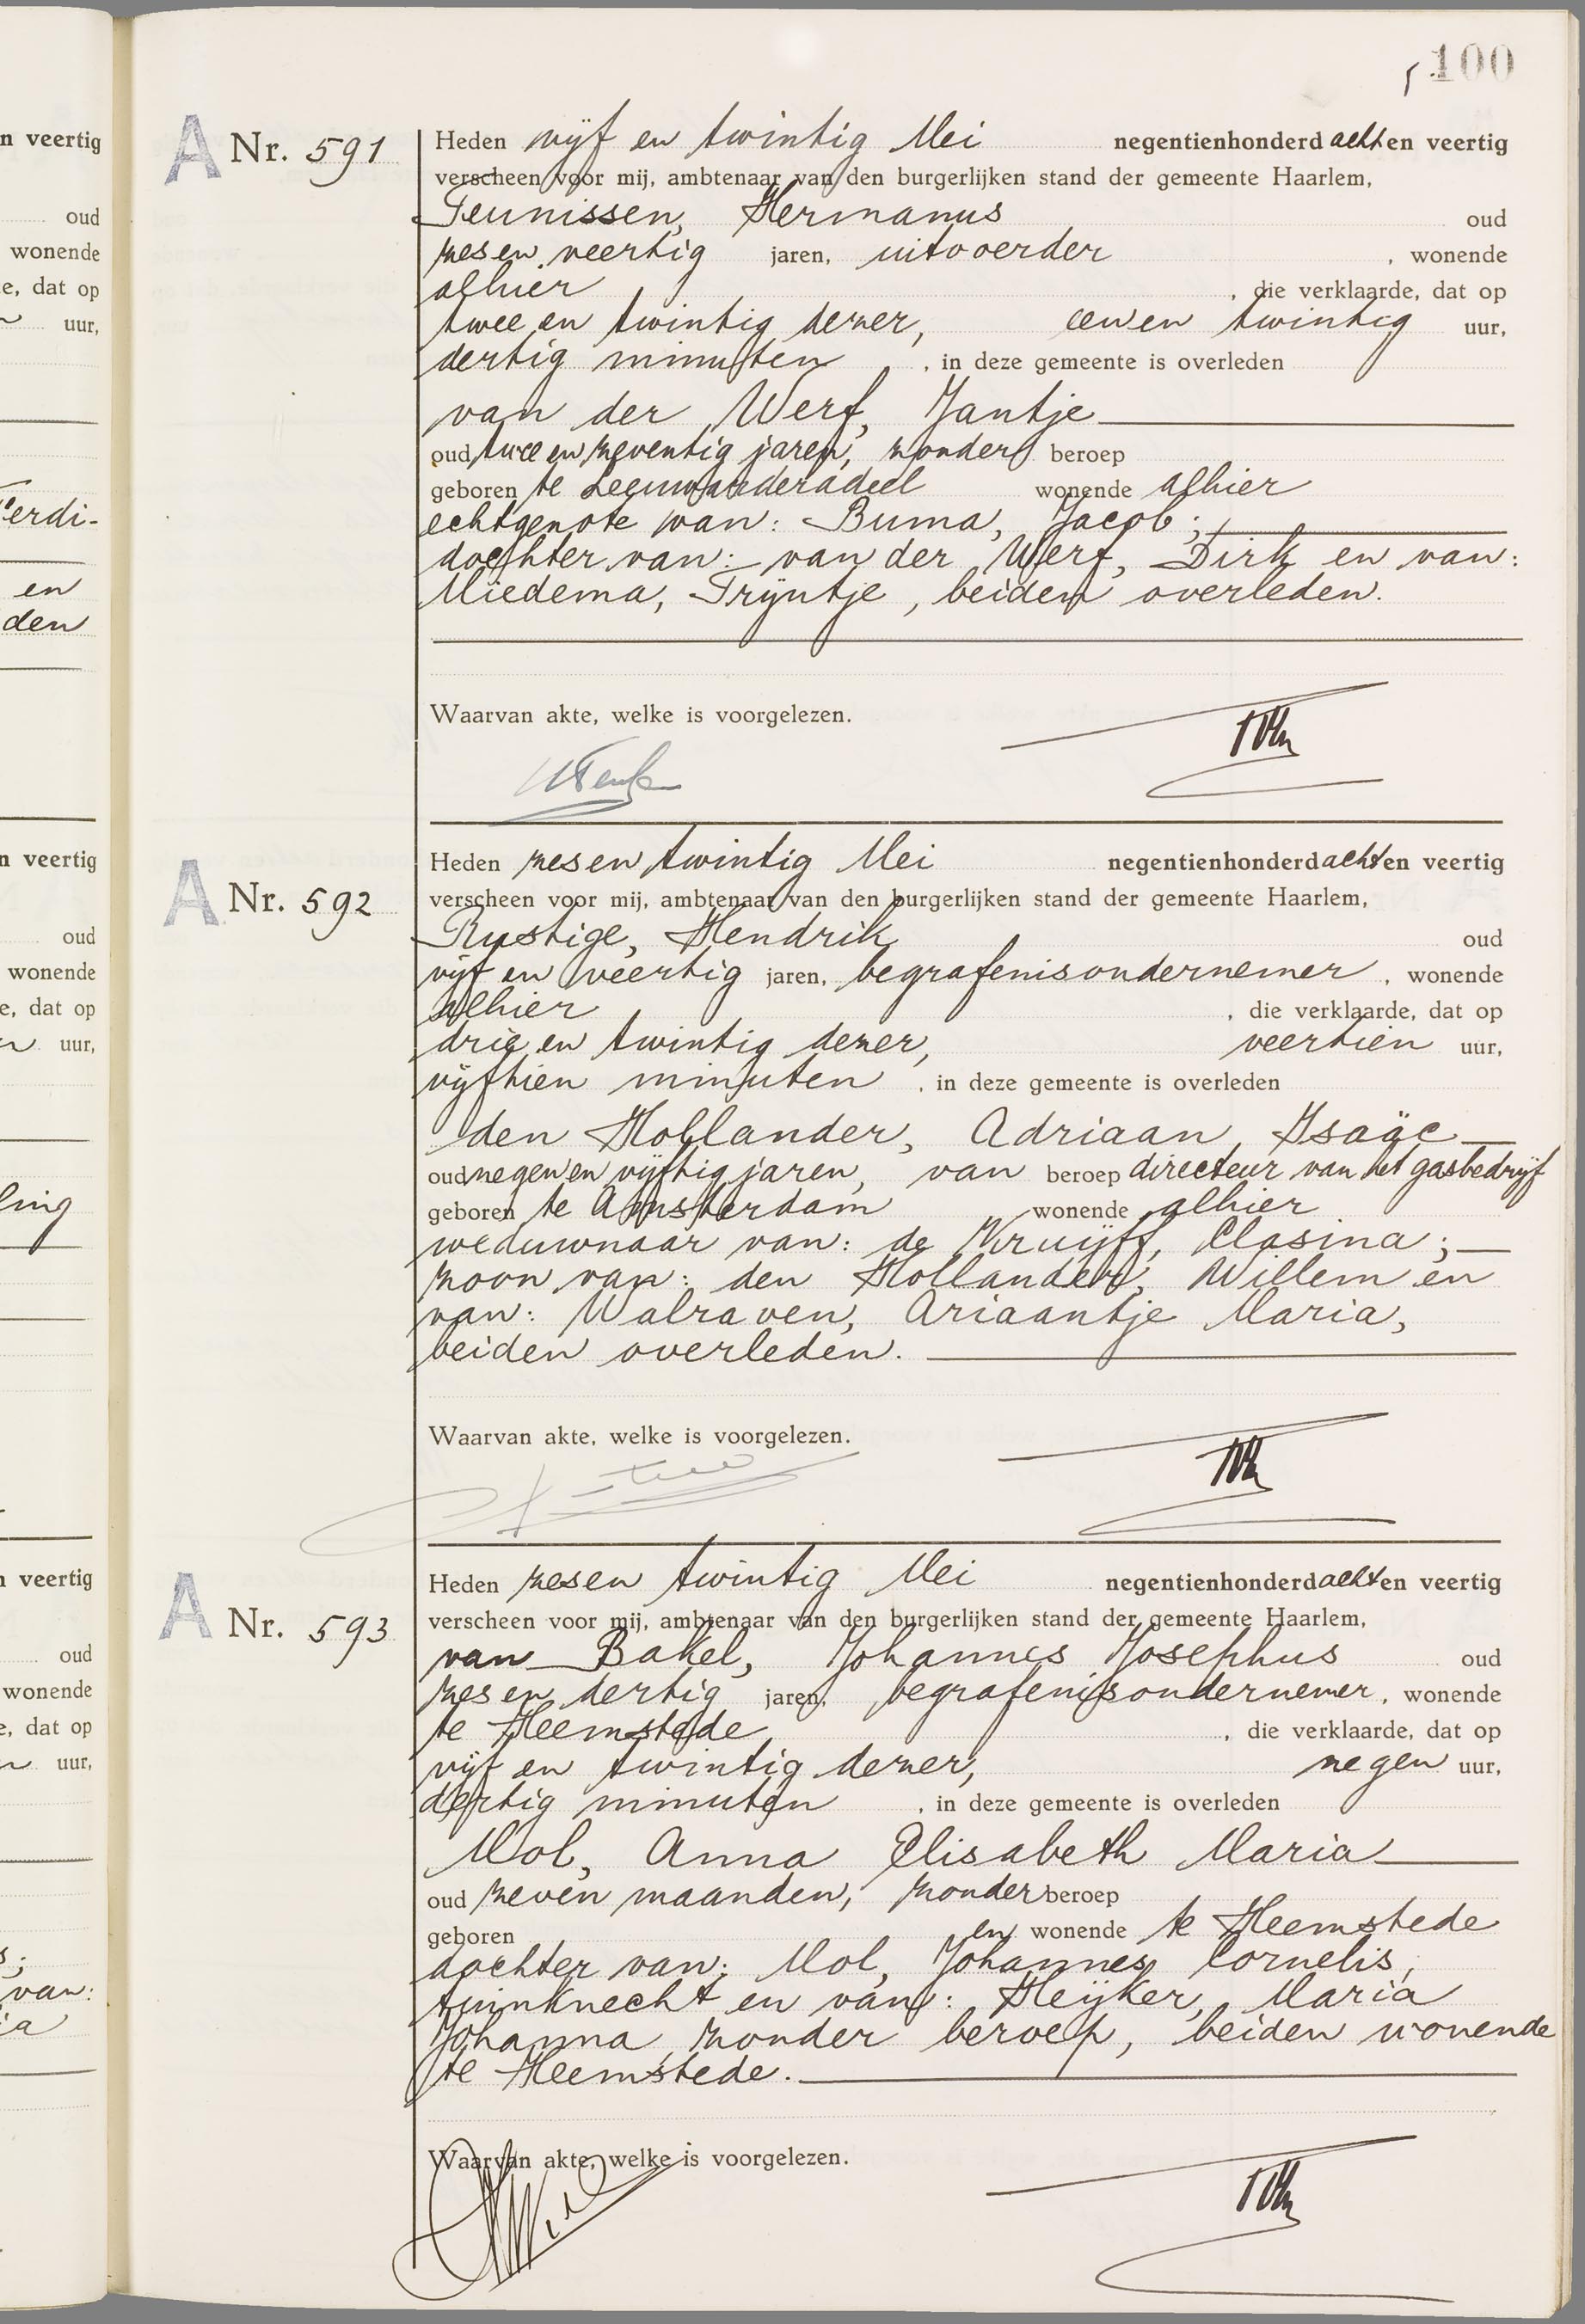 100
A Nr. 591
Heden vijf en twintig Mei negentienhonderd acht en veertig
verscheen voor mij, ambtenaar van den burgerlijken stand der gemeente Haarlem,
Teunissen, Hermanus oud
zes en veertig jaren, uitvoerder, wonende
alhier, die verklaarde, dat op
twee en twintig dezer, een en twintig uur,
dertig minuten, in deze gemeente is overleden
van der Werf, Jantje
oud twee en zeventig jaren, zonder beroep
geboren te Leeuwarderadeel wonende alhier
echtgenote van: Buma, Jacob;
dochter van: van der Werf, Dirk en van:
Miedema, Trijntje, beiden overleden.
Waarvan akte, welke is voorgelezen.
A Nr. 592
Heden zes en twintig Mei negentienhonderd acht en veertig
verscheen voor mij, ambtenaar van den burgerlijken stand der gemeente Haarlem,
Rustige, Hendrik oud
vijf en veertig jaren, begrafenisondernemer, wonende
alhier, die verklaarde, dat op
drie en twintig dezer, veertien uur,
vijftien minuten, in deze gemeente is overleden
den Hollander, Adriaan, Isaäc
oud negen en vijftig jaren, van beroep directeur van het gasbedrijf
geboren te Amsterdam wonende alhier
weduwnaar van: de Kruijff, Clasina;
zoon van: den Hollander, Willem en
van: Walraven, Ariaantje Maria,
beiden overleden.
Waarvan akte, welke is voorgelezen.
A Nr. 593
Heden zes en twintig Mei negentienhonderd acht en veertig
verscheen voor mij, ambtenaar van den burgerlijken stand der gemeente Haarlem,
van Bakel, Johannes Josephus oud
zes en dertig jaren, begrafenisondernemer, wonende
te Heemstede, die verklaarde, dat op
vijf en twintig dezer, negen uur,
dertig minuten, in deze gemeente is overleden
Mol, Anna Elisabeth Maria
oud zeven maanden, zonder beroep
geboren en wonende te Heemstede
dochter van: Mol, Johannes Cornelis,
tuinknecht en van: Heijker, Maria
Johanna zonder beroep, beiden wonende
te Heemstede.
Waarvan akte, welke is voorgelezen.
n veertig
oud
wonende
e, dat op
uur,
erdi-
en
den
n veertig
oud
wonende
e, dat op
uur,
ling
n veertig
oud
wonende
e, dat op
uur,
van: